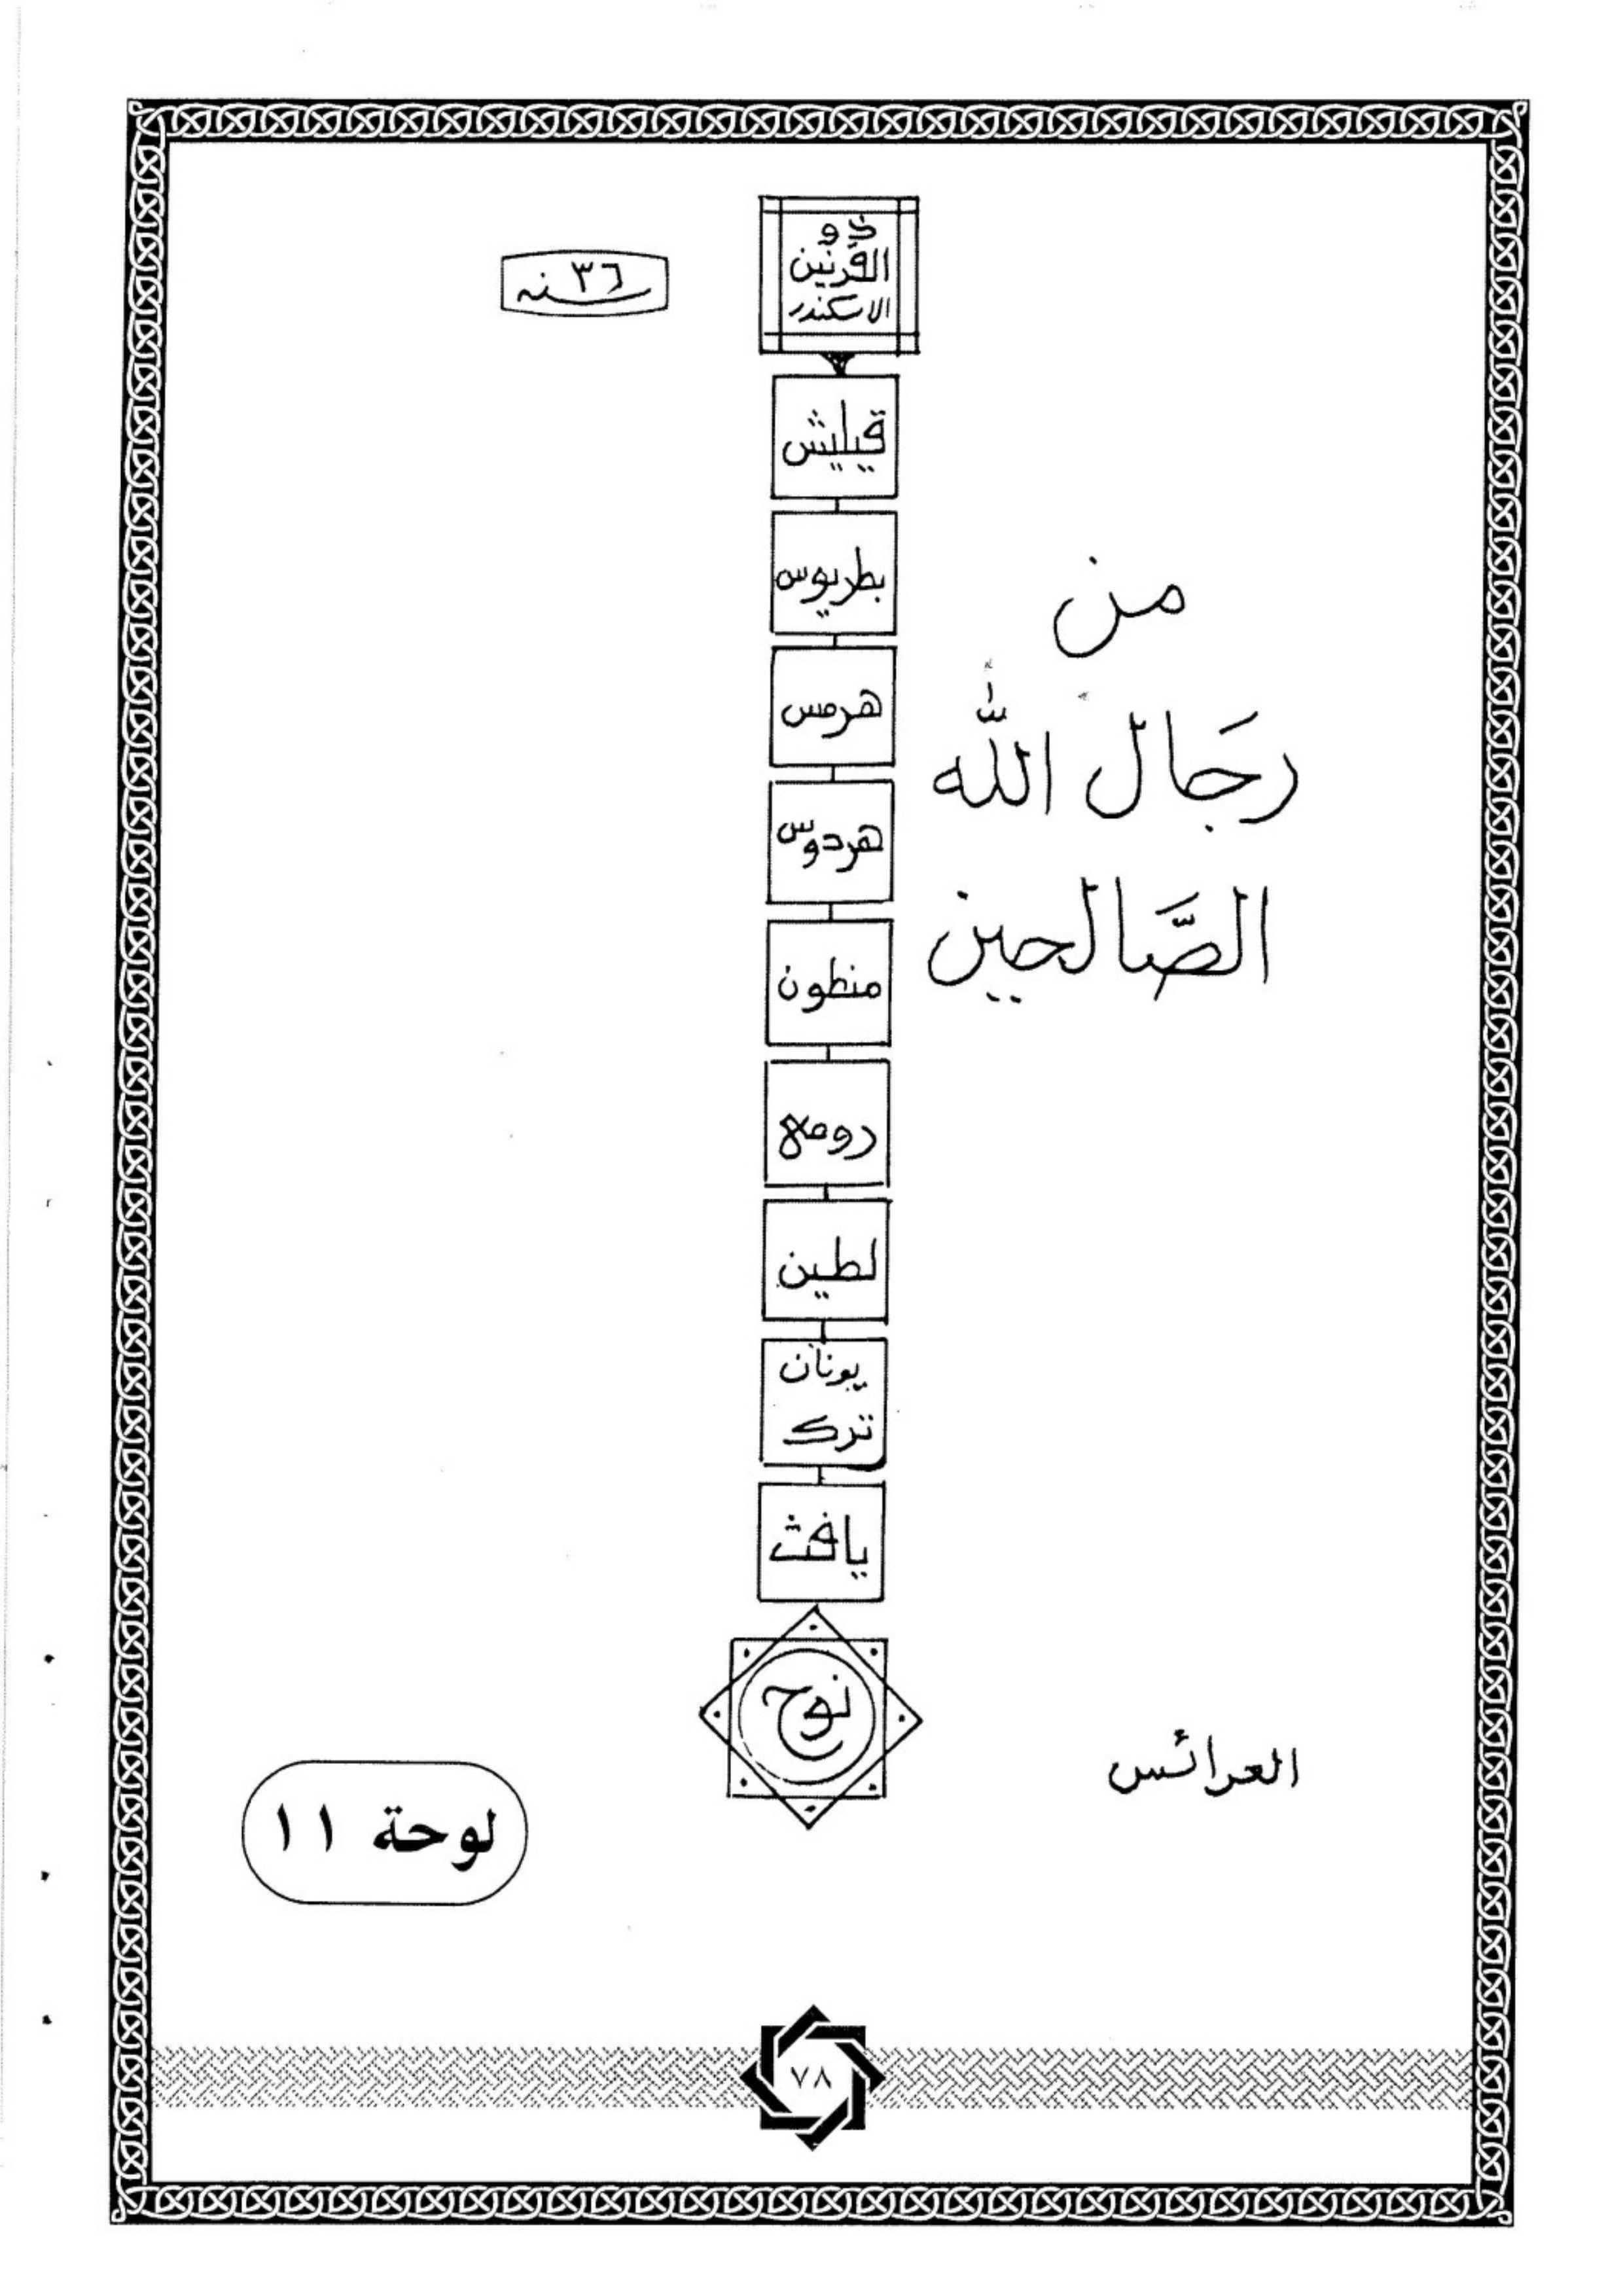 ذو
القرنين
الاسكندر
٣٦ سنه
قيليش
بطريوس
هرمس
هردوس
منطون
رومى
لطين
يونان
ترك
يافث
نوح
من
رجَال اللّٰه
الصَّالحين
العرائس
لوحة ١١
٧٨